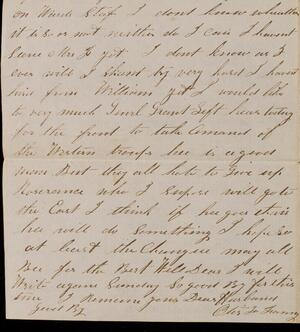 on Wards Staff I dont know whether
it is so or not neither do I care I havent
seen Mrs G yet I dont know as I
ever will I think by very hard I havent
hird from William yet I would like
to very much Genrl Grant left hear today
for the front to take Comand of
the Western troops hee is a good
man But they all hate to give up
Roserance who I supose will go to
the East I think if hee goes their
hee will do something I hope so
at least the Change may all
Bee for the Best Well Dear I will
Write again Sunday So good By for this
time I Remain your Dear Husband
Good By